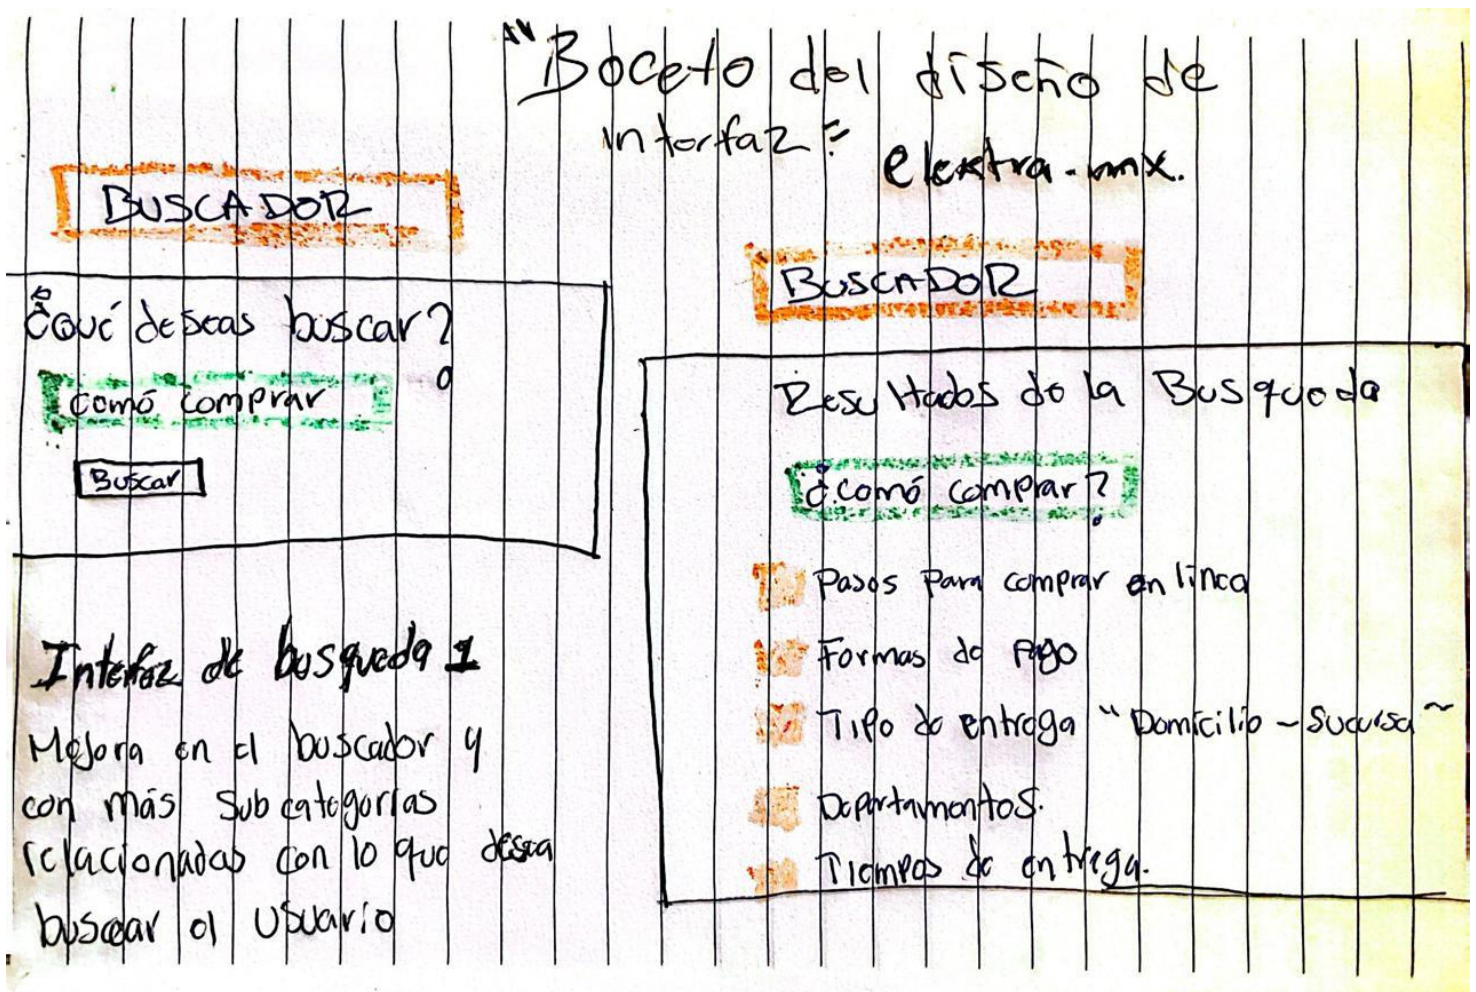 "Boceto del diseño de
interfaz =
elextra.mx.
BUSCADOR
¿Qué deseas buscar?
comó comprar
Buscar
Interfaz de busqueda 1
Mejora en el buscador y
con más subcategorias
relacionadas con lo que desea
buscar el usuario
BUSCADOR
Resultados de la Busqueda
¿comó comprar?
Pasos para comprar en linea
Formas de pago
Tipo de entrega "Domicilio - Sucursa"
Departamentos.
Tiempos de entrega.